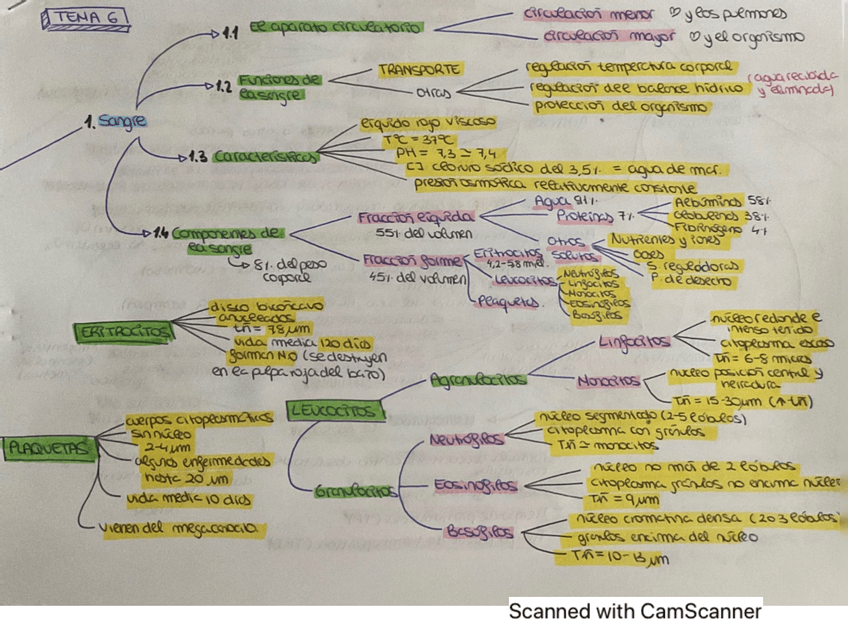 TEMA 6
1. Sangre
1.1 El aparato circulatorio
circulación menor ♡ y los pulmones
circulación mayor ♡ y el organismo
1.2 Funciones de
la sangre
TRANSPORTE
otras
regulación temperctura corporal
regulación del balance hídrico (agua recibida
y eliminada)
protección del organismo
1.3 Características
líquido rojo viscoso
TªC = 37ºC
PH = 7,3 = 7,4
[] cloruro sódico del 3,5% = agua de mar.
presión osmótica relativamente constante
1.4 Componentes de
la sangre
8% del peso
corporal
Fracción líquida
55% del volumen
Agua 91%
Proteínas 7%
Albúminas 58%
Globulinas 38%
Fibrinógeno 4%
Otros
solutos
Nutrientes y iones
Gases
S. reguladoras
P. de desecho
Fracción forme
45% del volumen
Eritrocitos
4,2-5,8 mill.
Leucocitos
Neutrófilos
Linfocitos
Monocitos
Eosinófilos
Basófilos
Plaquetas
ERITROCITOS
disco bicóncavo
anucleados
tñ = 7,8 µm
vida media 120 días
forman NO (se destruyen
en la pulpa roja del bazo)
PLAQUETAS
cuerpos citoplasmáticos
sin núcleo
2-4 µm
algunas enfermedades
hasta 20 µm
vida media 10 días
vienen del megacariocio
LEUCOCITOS
Agranulocitos
Linfocitos
núcleo redondo e
intenso teñido
citoplasma escaso
Tñ = 6-8 micras
Monocitos
núcleo posición central y
herradura
Tñ = 15-30 µm (↑ tñ)
Granulocitos
Neutrófilos
núcleo segmentado (2-5 lóbulos)
citoplasma con gránulos
Tñ ≃ monocitos
Eosinófilos
núcleo no más de 2 lóbulos
citoplasma gránulos no encima núcleo
Tñ = 9 µm
Basófilos
núcleo cromatina densa (2 o 3 lóbulos)
gránulos encima del núcleo
Tñ = 10-13 µm
Scanned with CamScanner